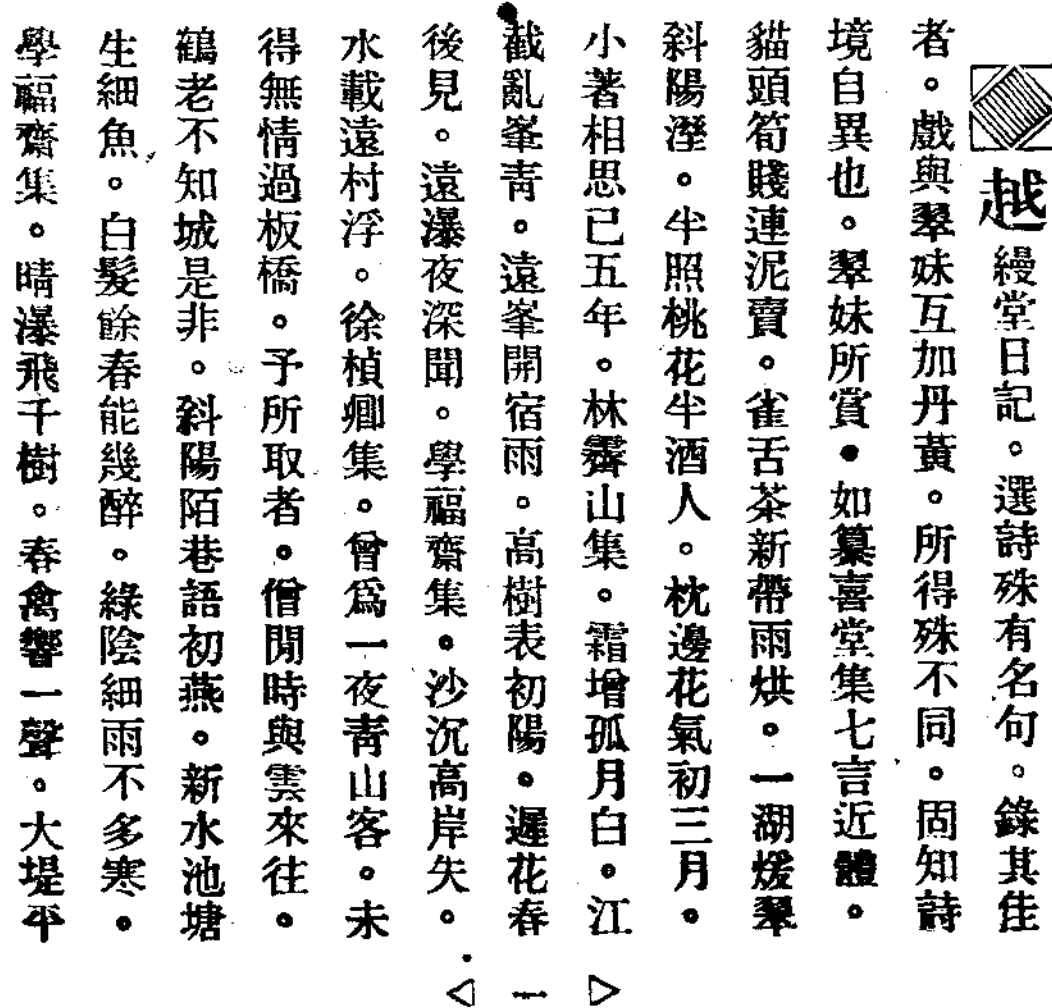 越縵堂日記。選詩殊有名句。錄其佳
者。戲與翠妹互加丹黃。所得殊不同。固知詩
境自異也。翠妹所賞。如纂喜堂集七言近體。
貓頭筍賤連泥賣。雀舌茶新帶雨烘。一湖煖翠
斜陽溼。半照桃花半酒人。枕邊花氣初三月。
小著相思已五年。林霽山集。霜增孤月白。江
截亂峯青。遠峯開宿雨。高樹表初陽。遲花春
後見。遠瀑夜深聞。學福齋集。沙沉高岸失。
水載遠村浮。徐楨卿集。曾爲一夜靑山客。未
得無情過板橋。予所取者。僧閒時與雲來往。
鶴老不知城是非。斜陽陌巷語初燕。新水池塘
生細魚。白髮餘春能幾醉。綠陰細雨不多寒。
學福齋集。晴瀑飛千樹。春禽響一聲。大堤平
一